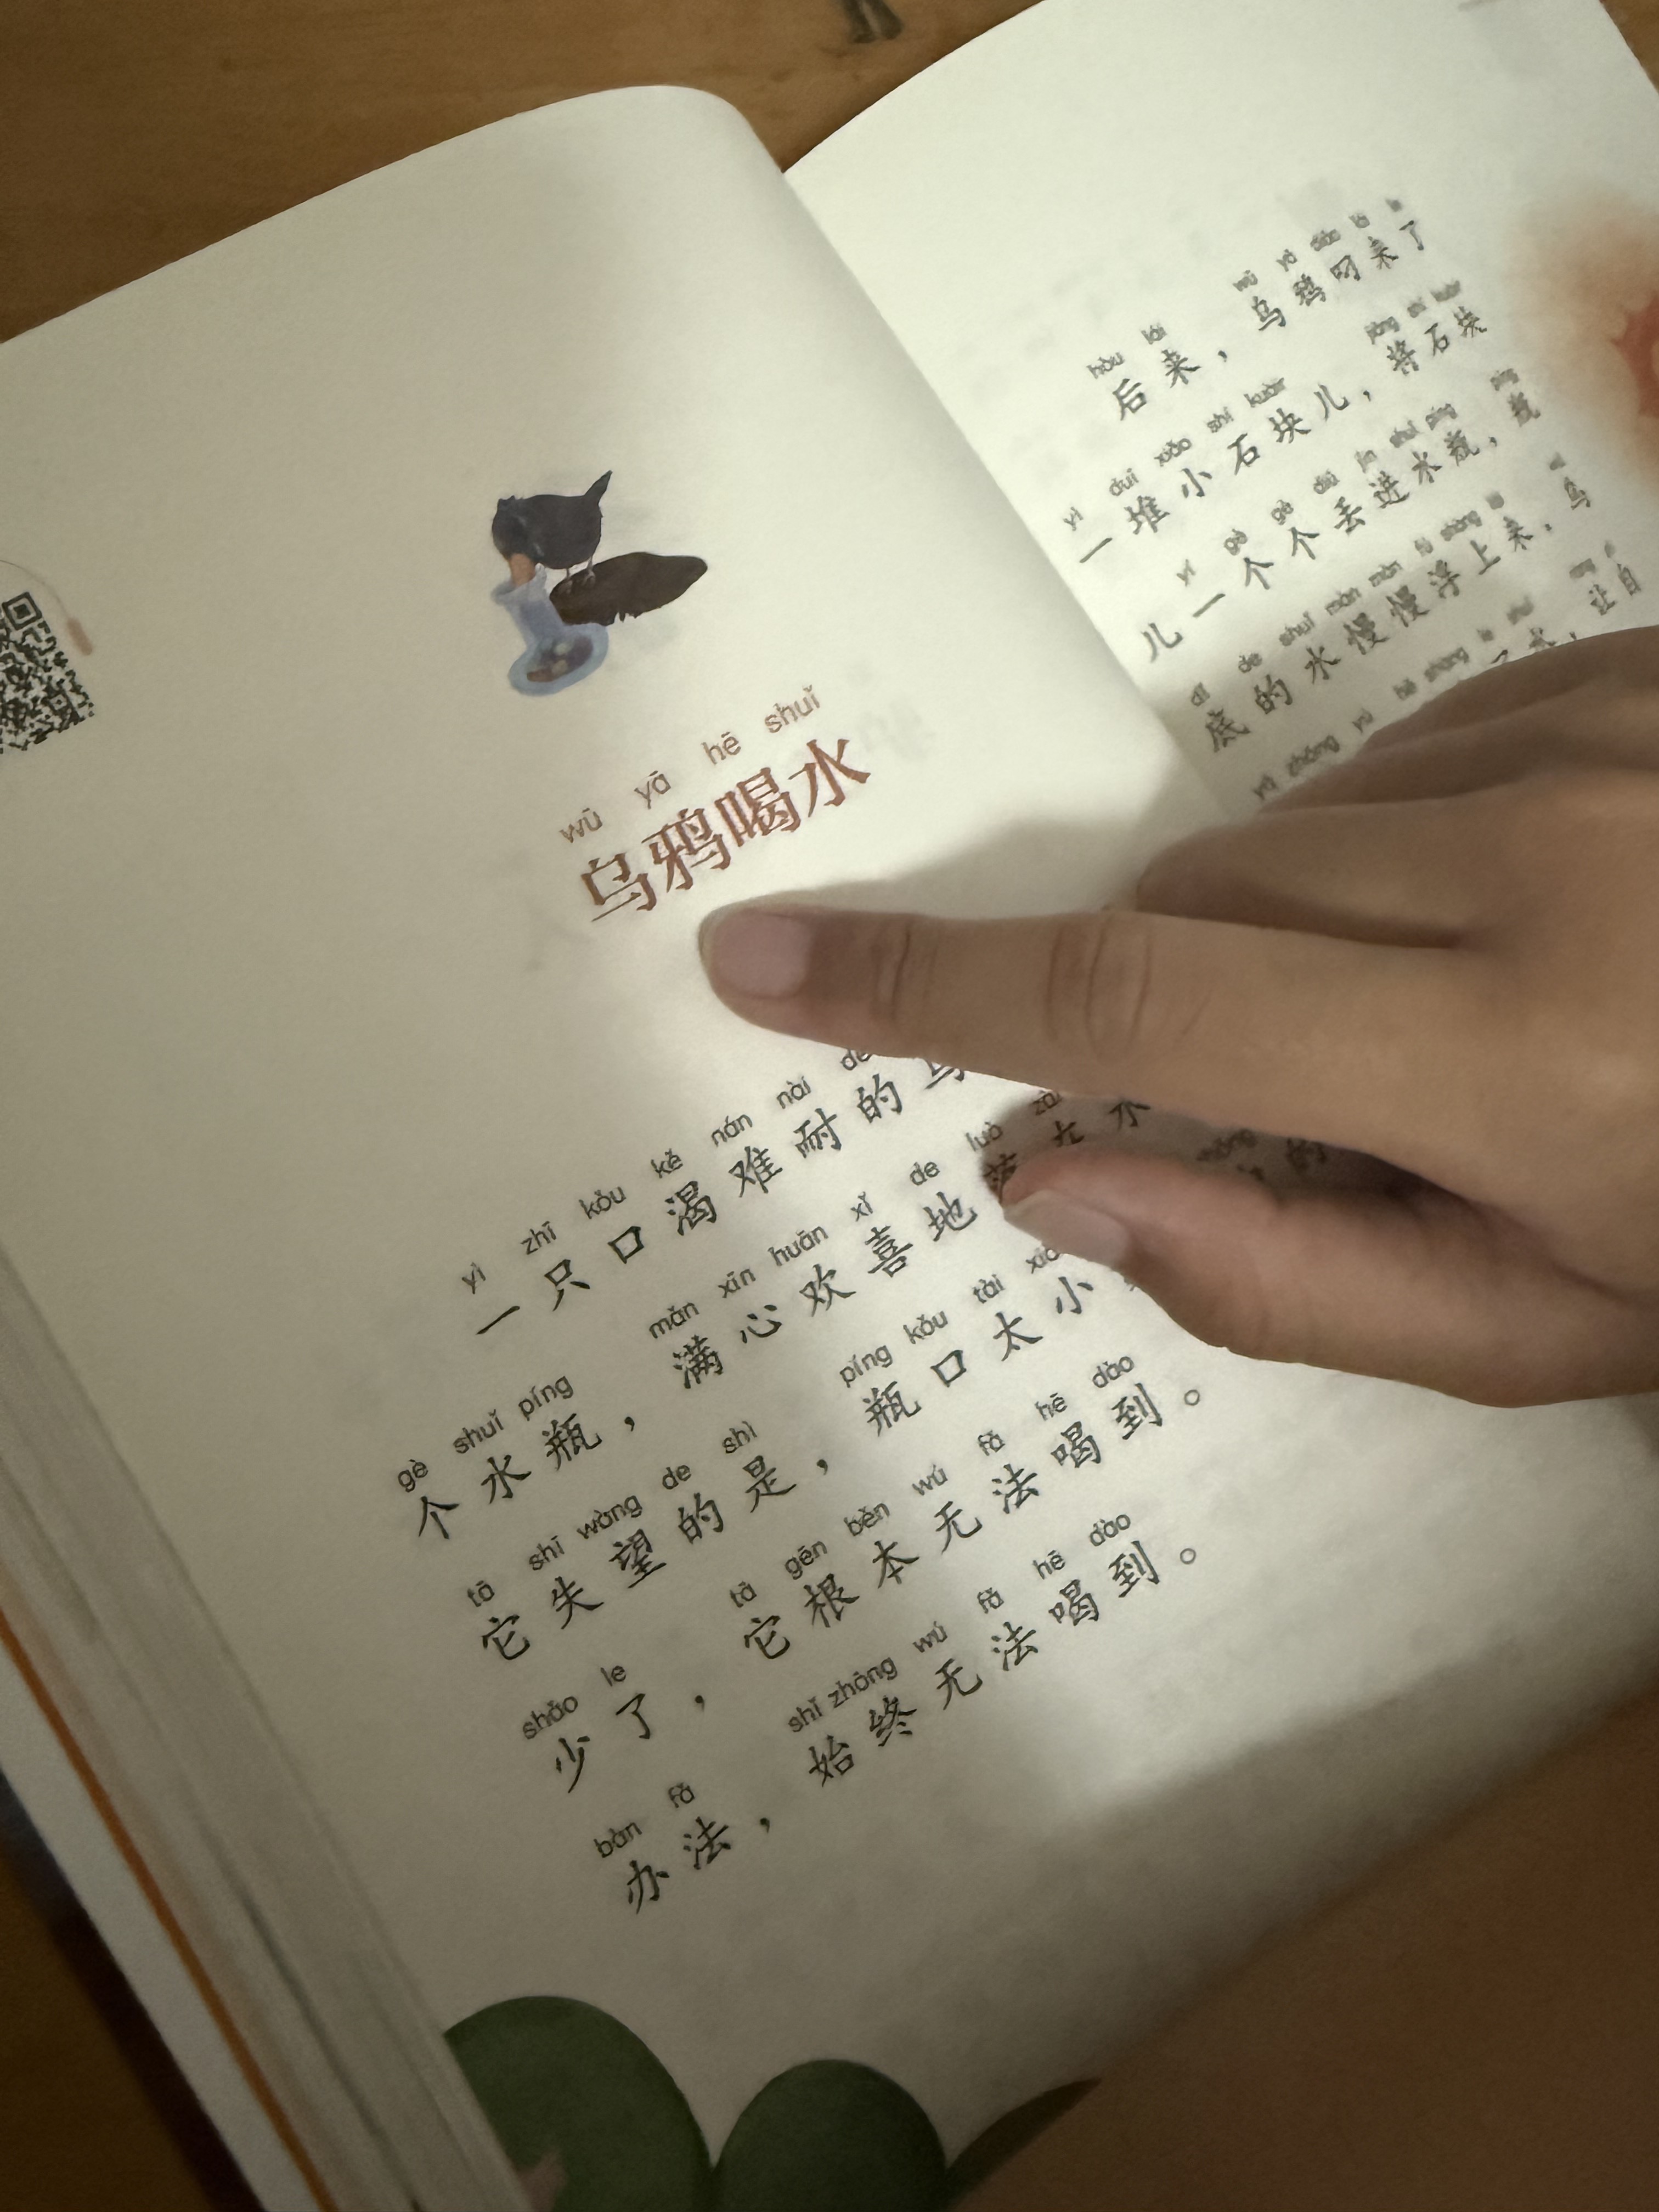 wū yā hē shuǐ
乌鸦喝水
yì zhī kǒu kě nán nài de
一只口渴难耐的乌
gè shuǐ píng mǎn xīn huān xǐ de luò
个水瓶，满心欢喜地落在水
tā shī wàng de shì píng kǒu tài
它失望的是，瓶口太小
shǎo le tā gēn běn wú fǎ hē dào
少了，它根本无法喝到。
bàn fǎ shǐ zhōng wú fǎ hē dào
办法，始终无法喝到。
hòu lái wū yā diāo lái le
后来，乌鸦叼来了
yì duī xiǎo shí kuàir jiāng shí kuài
一堆小石块儿，将石块
yí gè gè diū jìn shuǐ píng píng
儿一个个丢进水瓶，瓶
dǐ de shuǐ màn màn fú shàng lái
底的水慢慢浮上来，乌
yā zhōng yú hē shàng le shuǐ
水，让自